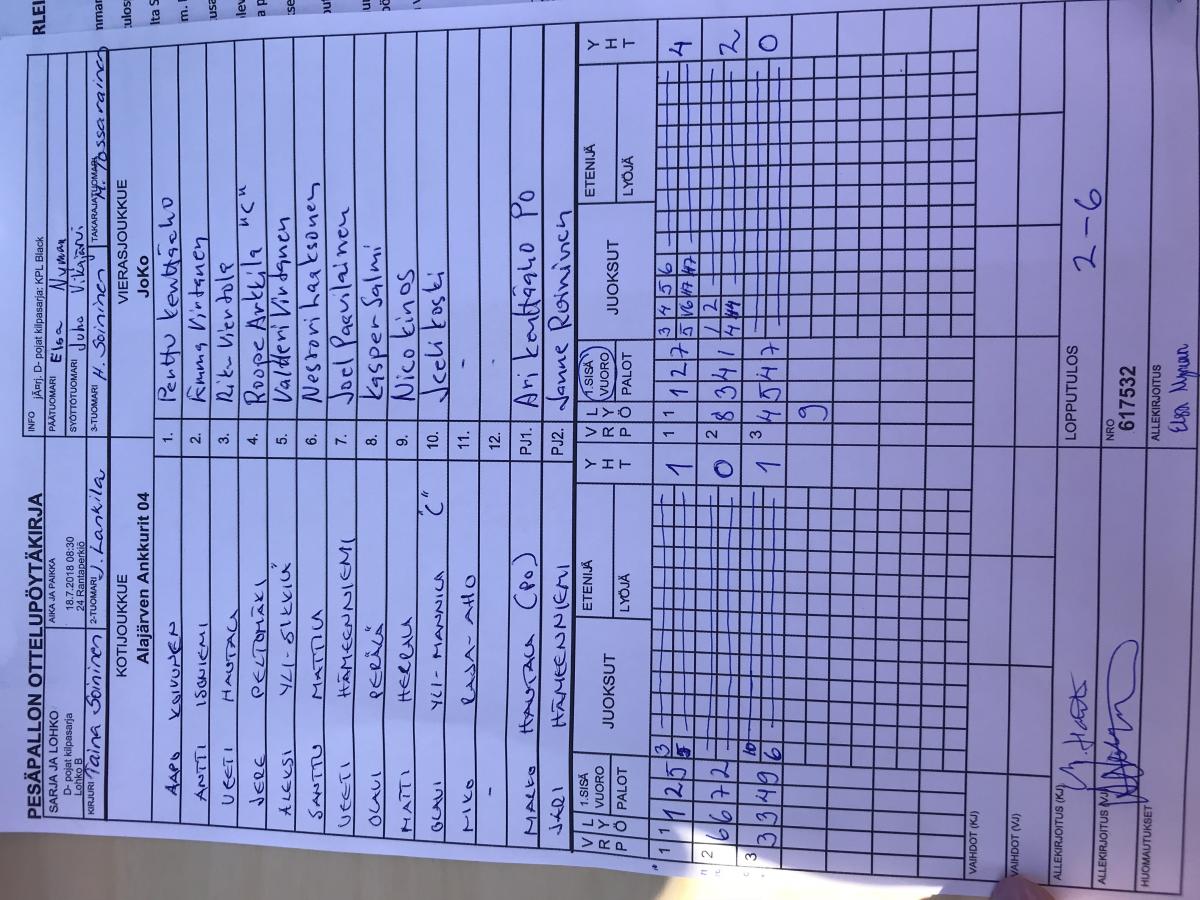 PESÄPALLON OTTELUPÖYTÄKIRJA
SARJA JA LOHKO
D- pojat kilpasarja
Lohko B
AIKA JA PAIKKA
18.7.2018 08:30
24 Rantaperkiö
INFO jÄ¤rj. D- pojat kilpasarja: KPL Black
PÄÄTUOMARI Elsa Nyman
SYÖTTÖTUOMARI Juha Viitajärvi
KIRJURI Taina Soininen
2-TUOMARI J. Lankila
3-TUOMARI H. Soininen
TAKARAJATUOMARI
KOTIJOUKKUE
VIERASJOUKKUE
Alajärven Ankkurit 04
JoKo
AAPO KOIVUNEN
1. Penttu Kenttäaho
ANTTI ISONIEMI
2. Virtanen
VEETI HAUTALA
3. Riku Viertola
JERE PELTOMÄKI
4. Roope Arkkila "C"
ALEKSI
5. Valtteri Virtanen
SANTTU MATTILA
6. Nestori Haaksonen
VEETI HÄMEENNIEMI
7. Joel Paavilainen
OLAVI PERÄLÄ
8. Kasper Salmi
MATTI HERRALA
9. Nico Kinos
OLAVI YLI-MANNILA "C"
10. Koski
MIKO RAJA-AHO
11. -
-
12. -
MARKO HAUTALA (PO)
PJ1. Ari Kenttäaho PO
JARI HÄMEENNIEMI
PJ2. Janne Roininen
V R P
L Y Ö
1.SISÄ VUORO
PALOT
JUOKSUT
ETENIJÄ
LYÖJÄ
Y H T
V R P
L Y Ö
1.SISÄ VUORO
PALOT
JUOKSUT
ETENIJÄ
LYÖJÄ
Y H T
1 1 1 2 5 3 1
5
1 1 1 2 7 3 4 5 6 4
2 6 6 7 2 0
2 8 3 4 1 1 2 2
3 3 3 4 9 10 1
6
3 4 5 4 7 0
9
VAIHDOT (KJ)
VAIHDOT (VJ)
ALLEKIRJOITUS (KJ)
LOPPUTULOS 2-6
ALLEKIRJOITUS (VJ)
NRO
617532
HUOMAUTUKSET
ALLEKIRJOITUS
Elsa Nyman